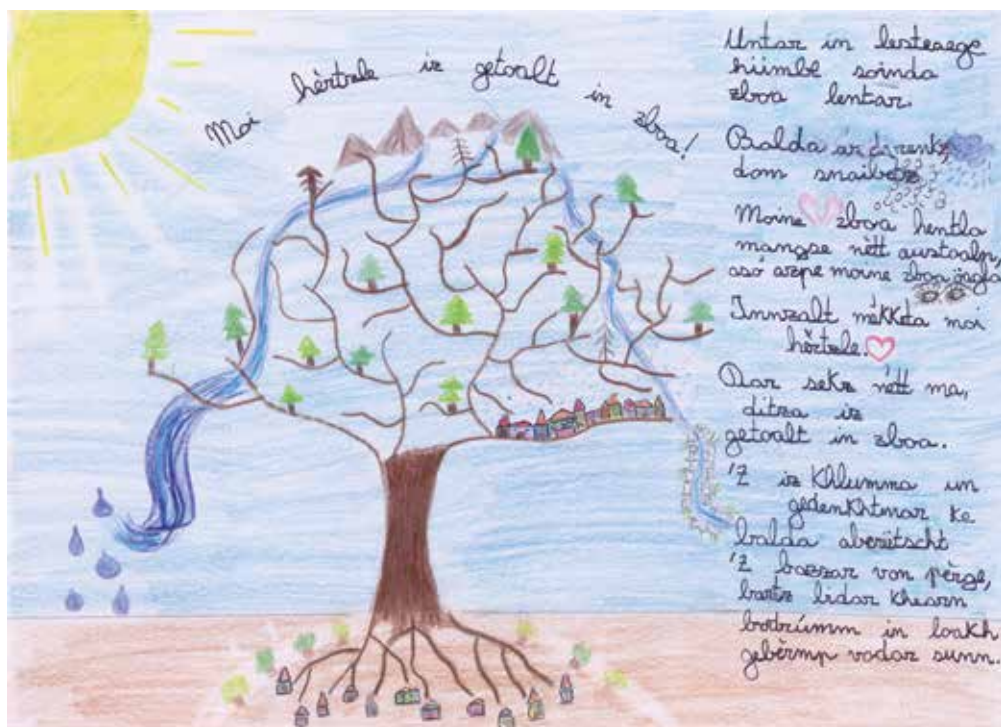 Moi hèrtzle iz getoalt in zboa!
Untar in
soinda
zboa lentar.
Balda
Moine zboa hentla
mangse nètt austoaln,
asó azpe moine zboa
Innzalt mèkketa moi
hèrtzle.
Dar sekz nètt ma,
ditza iz
getoalt in zboa.
'Z iz khlumma un
gedenkhtmar ke
balda aberètscht
'Z bazzar von pèrge,
bartz bidar khearn
bodrùmm in loakh
gebèrmp vodar sunn.